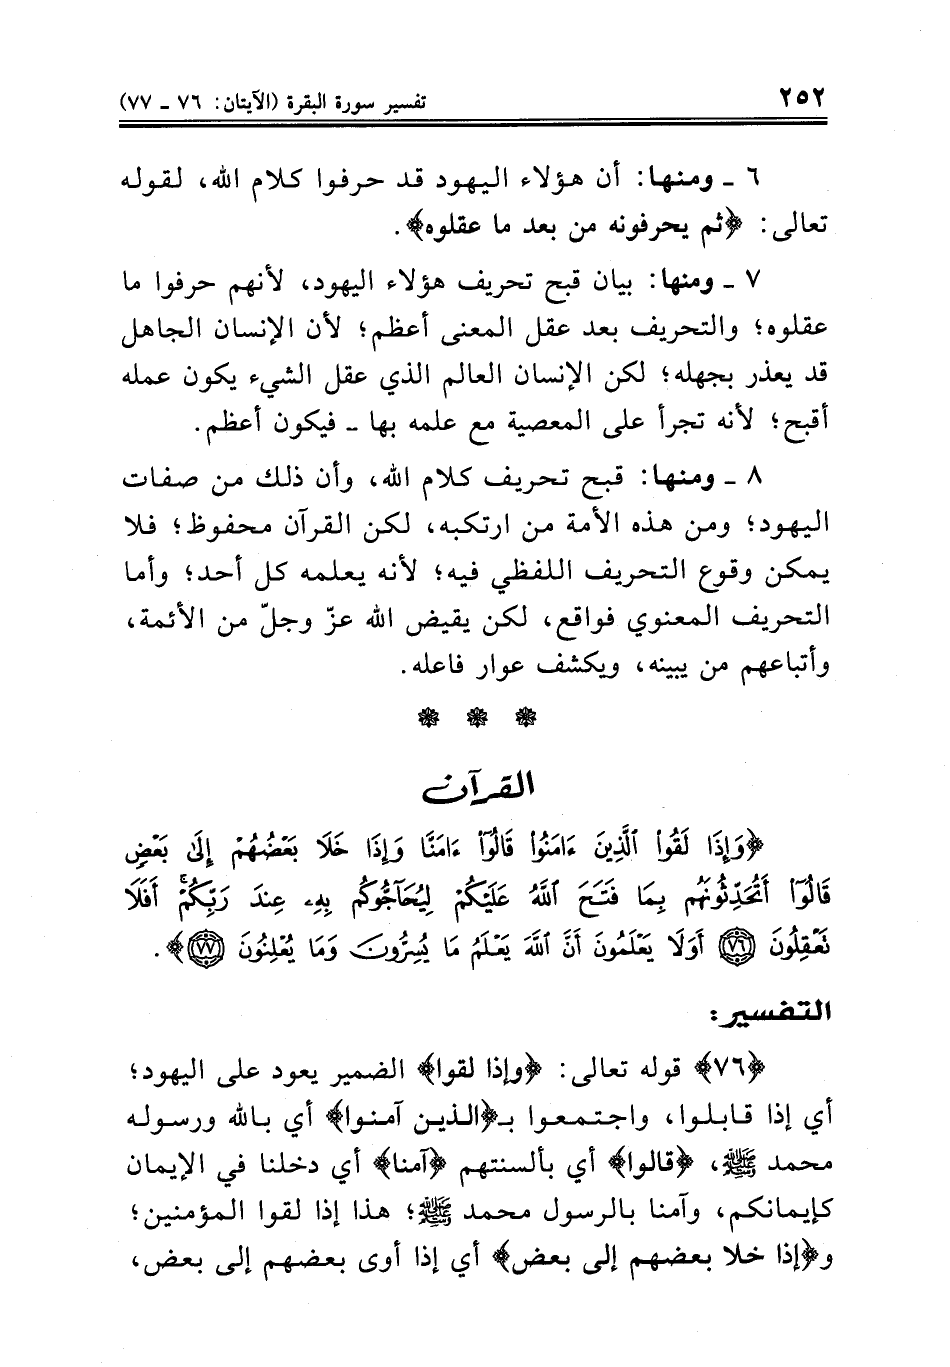 ٢٥٢ تفسير سورة البقرة (الآيتان: ٧٦ ـ ٧٧)
٦ ـ ومنها: أن هؤلاء اليهود قد حرفوا كلام الله، لقوله
تعالى: ﴿ثم يحرفونه من بعد ما عقلوه﴾.
٧ ـ ومنها: بيان قبح تحريف هؤلاء اليهود، لأنهم حرفوا ما
عقلوه؛ والتحريف بعد عقل المعنى أعظم؛ لأن الإنسان الجاهل
قد يعذر بجهله؛ لكن الإنسان العالم الذي عقل الشيء يكون عمله
أقبح؛ لأنه تجرأ على المعصية مع علمه بها ـ فيكون أعظم.
٨ ـ ومنها: قبح تحريف كلام الله، وأن ذلك من صفات
اليهود؛ ومن هذه الأمة من ارتكبه، لكن القرآن محفوظ؛ فلا
يمكن وقوع التحريف اللفظي فيه؛ لأنه يعلمه كل أحد؛ وأما
التحريف المعنوي فواقع، لكن يقيض الله عزّ وجلّ من الأئمة،
وأتباعهم من يبينه، ويكشف عوار فاعله.
القرآن
﴿وَإِذَا لَقُوا۟ ٱلَّذِينَ ءَامَنُوا۟ قَالُوٓا۟ ءَامَنَّا وَإِذَا خَلَا بَعْضُهُمْ إِلَىٰ بَعْضٍ
قَالُوٓا۟ أَتُحَدِّثُونَهُم بِمَا فَتَحَ ٱللَّهُ عَلَيْكُمْ لِيُحَآجُّوكُم بِهِۦ عِندَ رَبِّكُمْ ۚ أَفَلَا
تَعْقِلُونَ ٧٦ أَوَلَا يَعْلَمُونَ أَنَّ ٱللَّهَ يَعْلَمُ مَا يُسِرُّونَ وَمَا يُعْلِنُونَ ٧٧﴾.
التفسير:
﴿٧٦﴾ قوله تعالى: ﴿وإذا لقوا﴾ الضمير يعود على اليهود؛
أي إذا قابلوا، واجتمعوا بـ﴿الذين آمنوا﴾ أي بالله ورسوله
محمد ﷺ، ﴿قالوا﴾ أي بألسنتهم ﴿آمنا﴾ أي دخلنا في الإيمان
كإيمانكم، وآمنا بالرسول محمد ﷺ؛ هذا إذا لقوا المؤمنين؛
و﴿إذا خلا بعضهم إلى بعض﴾ أي إذا أوى بعضهم إلى بعض،